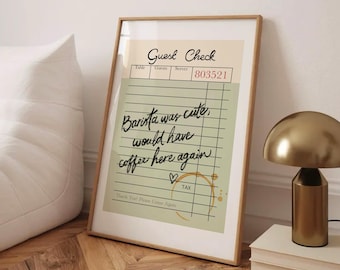 Guest Check
Table Guests Server 803521
Barista was cute,
would have
coffee here again
TAX
Thank You! Please Come Again